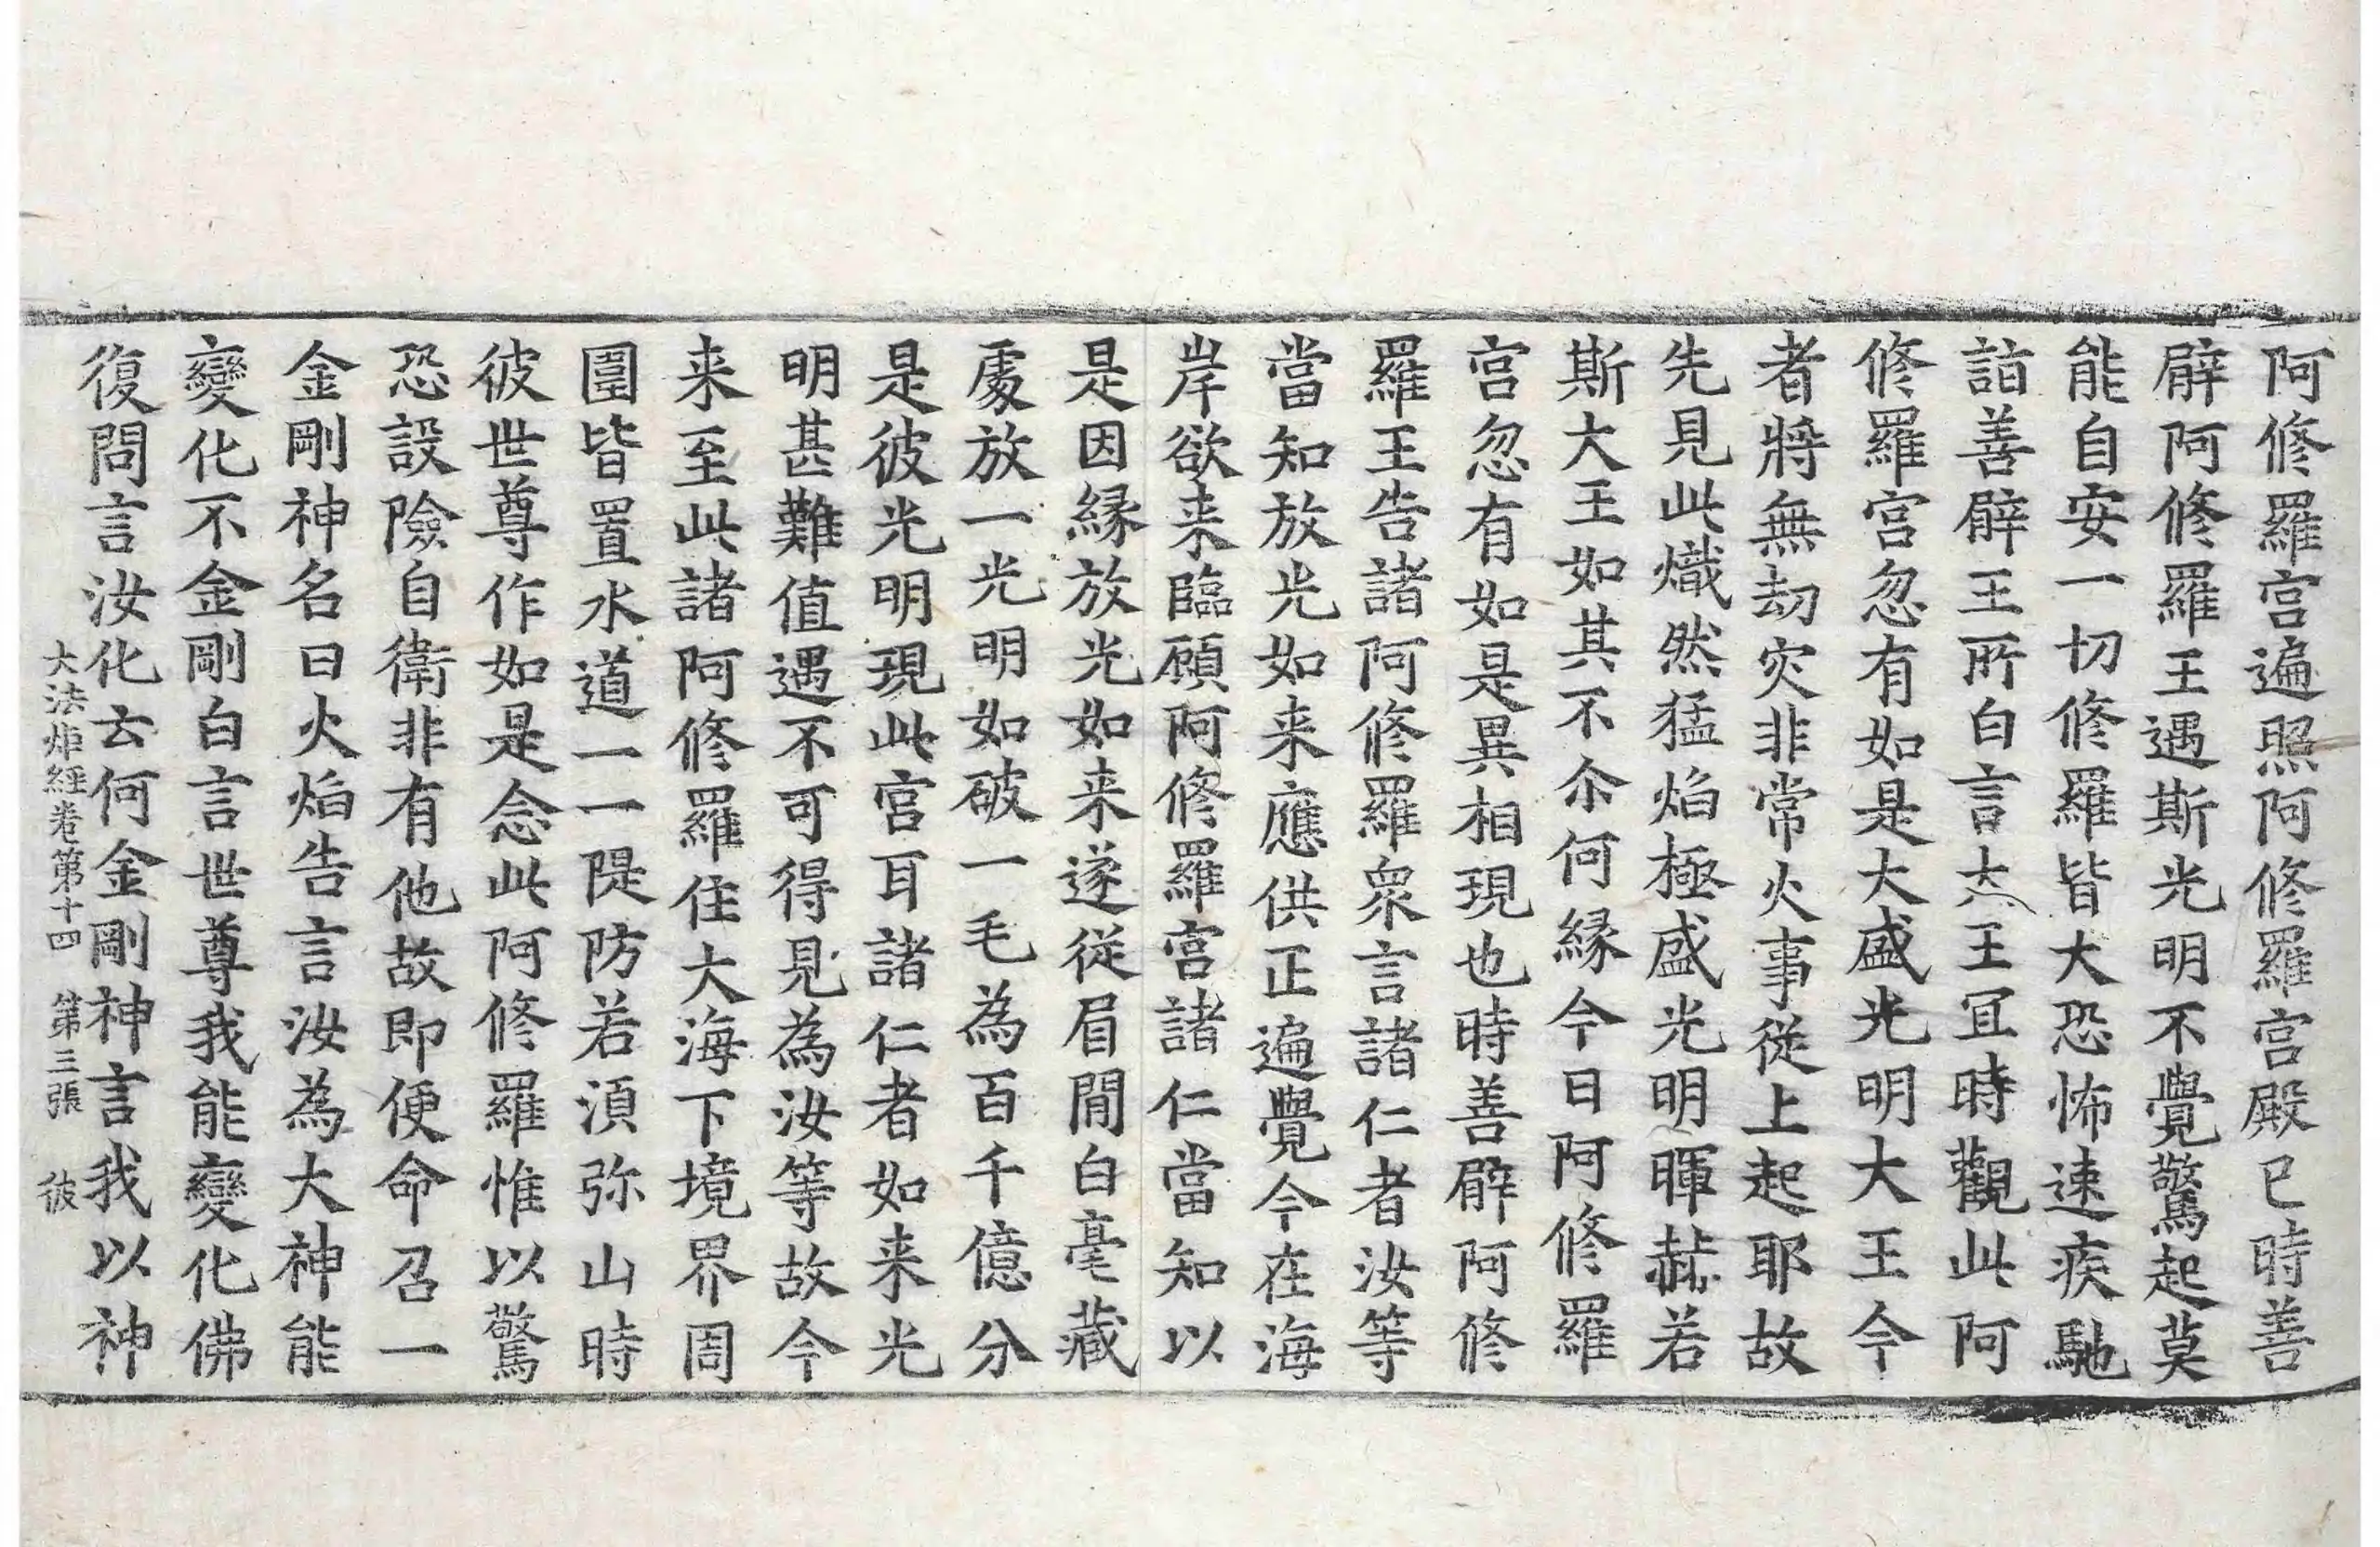 阿修羅宮遍照阿修羅宮殿已時善
臂阿修羅王遇斯光明不覺驚起莫
能自安一切修羅皆大恐怖速疾馳
詣善臂王所白言大王冝時觀此阿
修羅宮忽有如是大盛光明大王今
者將無劫灾非常火事従上起耶故
先見此熾然猛焰極盛光明暉赫若
斯大王如其不尒何縁今日阿修羅
宮忽有如是異相現也時善臂阿修
羅王告諸阿修羅衆言諸仁者汝等
當知放光如来應供正遍覺今在海
岸欲来臨顧阿修羅宮諸仁當知以
是因縁放光如来遂従眉間白毫藏
處放一光明如破一毛為百千億分
是彼光明現此宮耳諸仁者如来光
明甚難值遇不可得見為汝等故今
来至此諸阿修羅住大海下境界周
圍皆置水道一一隄防若湏弥山時
彼世尊作如是念此阿修羅惟以驚
恐設險自衛非有他故即便命召一
金剛神名曰火焰告言汝為大神能
變化不金剛白言世尊我能變化佛
復問言汝化云何金剛神言我以神
大法炬經卷第十四 第三張 彼